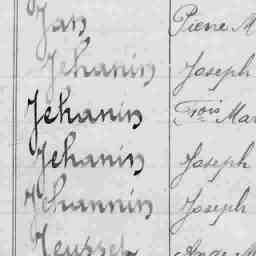 Jan Pierre M
Jehanin Joseph
Jehanin Frois Mar
Jehanin Joseph
Jehannin Joseph
Ange M